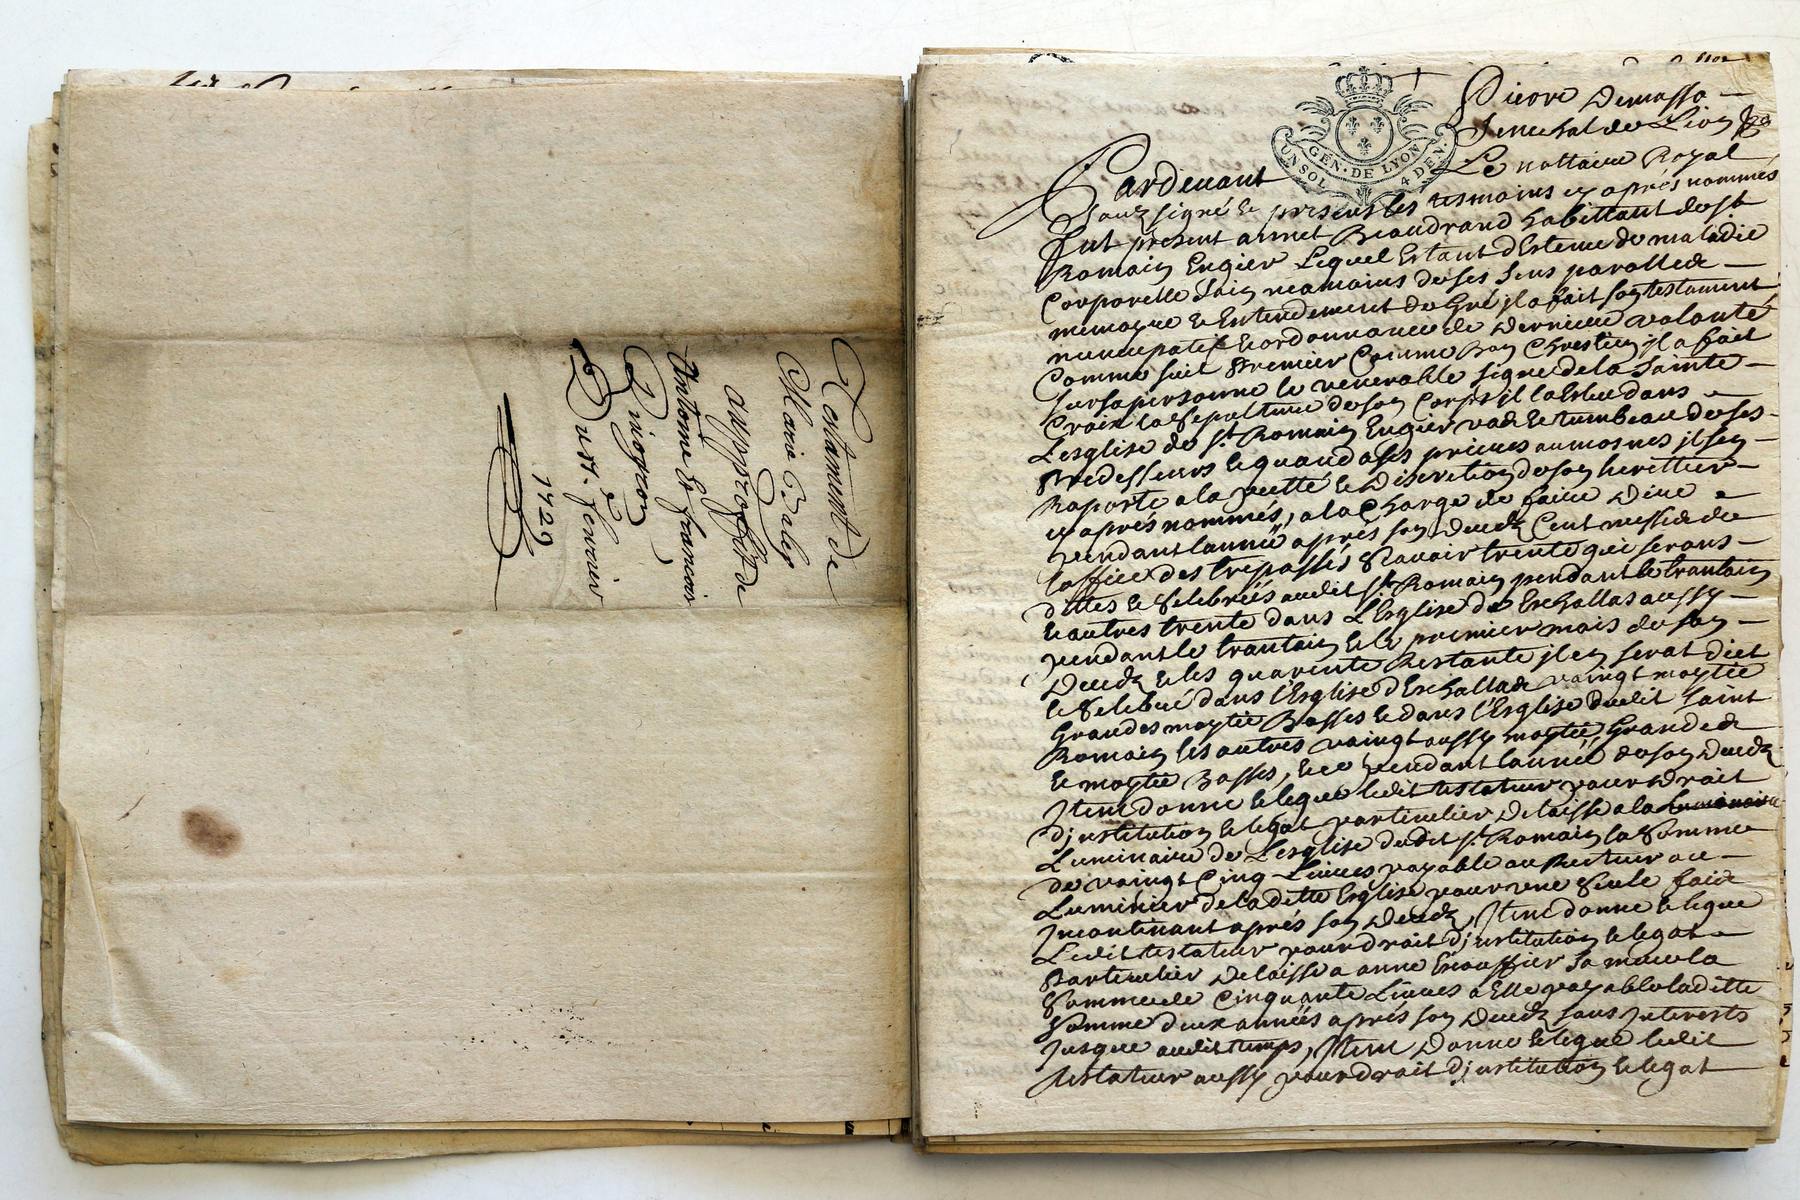 Testament de
Marie
au proffit de
Antoine & françois
Du 11e. fevrier
1729
Pierre
Senechal de Lion
GÉN. DE LYON
UN SOL 4 DEN.
Pardevant Le nottaire Royal
souz signé & presens les tesmoins cy aprés nommés
fut présent annet Beaudrand habittant de st
Romain Engier Lequel Estant d'Estenu de maladie
Corporelle sain neamoins de ses sens parolle &
memoyre & Entendement de Gré jl a fait son testament
nuncupatif & ordonnance de derniere volonté
Comme suit Premier Comme Bon Chrestien jl a fait
sur sa personne le venerable signe de la sainte
Croix la Sepulture de son Corps jl la Eslue dans
L'esglise de st. Romain Engier tumbeau de ses
Predesseurs & quand a ses prieres aumosnes jl s'en
Raporte a la & Discretion de son herettier
cy aprés nommés, a la Charge de faire dire
pendant l'année aprés son decedz Cent messes de
l'office des trepassés sçavoir trente qui seront
dittes & Celebréés audit st. Romain pendant le trantain
& autres trente dans L'Esglise de Eschallas aussy
pendant le trantain & le premier mois de son
Decedz & les quarente Restante jl en serat diet
& Celebré dans l'Esglise d'Eschallas vaingt moytié
Grandes moytié Basses & dans l'Esglise dudit saint
Romain les autres vaingt aussy moytié Grandes
& moytié Basses, pendant l'année de son Decedz
Jtem donne & legue ledit testateur pour Droit
d'jnstitution & legat particulier Delaisse a la
Luminaire de L'esglise dudit st. Romain la Somme
de vaingt Cinq Livres payable au Recteur ou
Luminier de la ditte Esglise pour une seule fois
Jncontinant aprés son Decedz, Jtem donne & legue
Ledit testateur pour droit d'jnstitution & legat
Particulier Delaisse a anne sa mere la
Somme de Cinquante Livres a Elle payable la ditte
somme deux annéés aprés son Decedz sans Jnterests
Jusque audit temps, Jtem Donne & legue ledit
testateur aussy pour droit d'jnstitution & legat